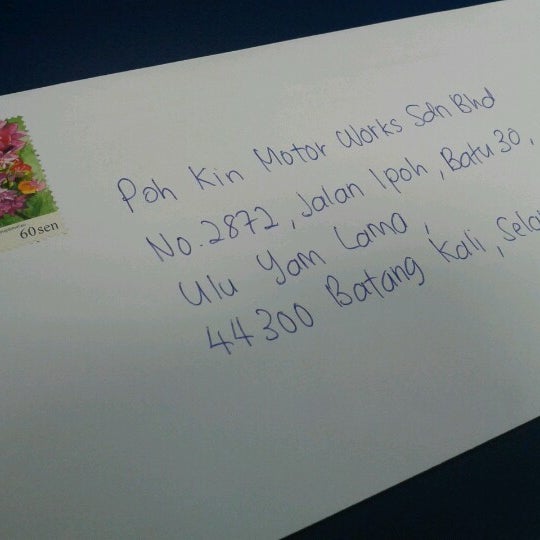 60sen
Poh Kin Motor Works Sdn Bhd
No. 2872, Jalan Ipoh, Batu 30,
Ulu Yam Lama,
44300 Batang Kali, Sela